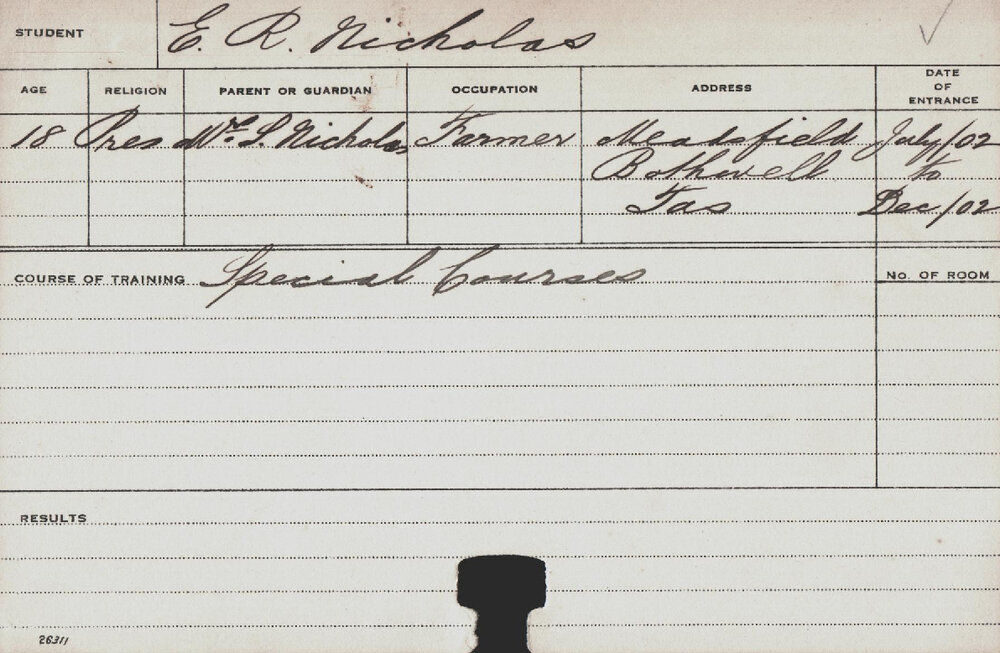 STUDENT E. R. Nicholas
AGE RELIGION PARENT OR GUARDIAN OCCUPATION ADDRESS DATE OF ENTRANCE
18 Pres Nicholas Farmer Meadsfield July/02
Bothwell to
Tas Dec/02
COURSE OF TRAINING Special Courses No. OF ROOM
RESULTS
26311